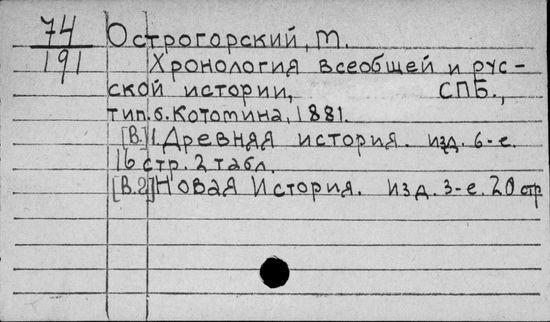 74
191
Острогорский, М.
Хронология всеобщей и рус-
ской истории, СПБ.,
тип. б. Котомина, 1881.
[В.]1 Древняя история. изд. 6-е.
16 стр. 2 табл.
[В.2] Новая История. изд. 3-е. 20 стр